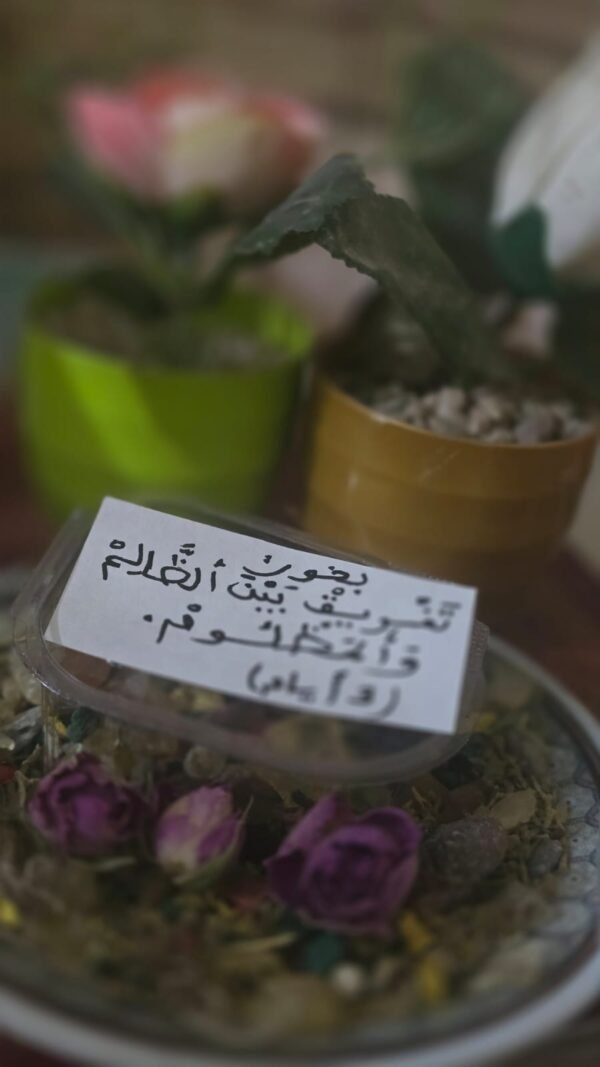 بخور
تَفْريق بَيْنَ ٱلظَّالِمْ
وَٱلمَظْلُومْ.
(٣ أيام)